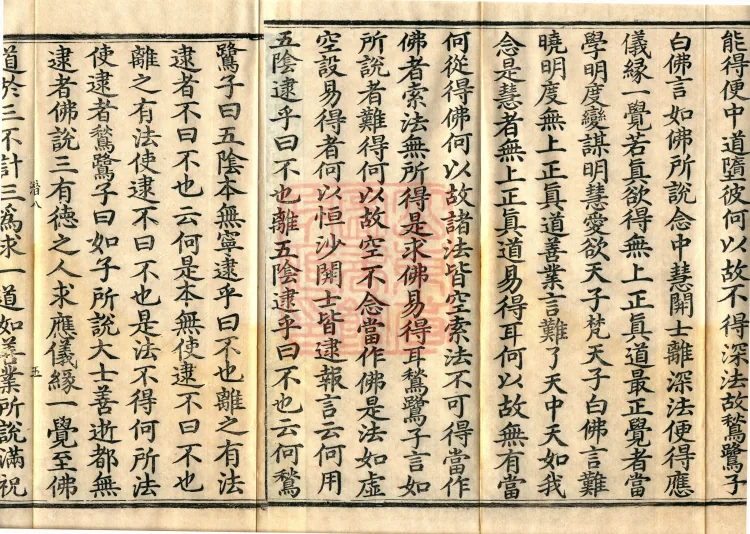 能得便中道墮彼何以故不得深法故鶖鷺子
白佛言如佛所說念中慧闓士離深法便得應
儀緣一覺若眞欲得無上正眞道最正覺者當
學明度變謀明慧愛欲天子梵天子白佛言難
曉明度無上正眞道善業言難了天中天如我
念是慧者無上正眞道易得耳何以故無有當
何從得佛何以故諸法皆空索法不可得當作
佛者索法無所得是求佛易得耳鶖鷺子言如
所說者難得何以故空不念當作佛是法如虛
空設易得者何以恒沙闓士皆逮報言云何用
五陰逮乎曰不也離五陰逮乎曰不也云何鶖
鷺子曰五陰本無寧逮乎曰不也離之有法
逮者不曰不也云何是本無使逮不曰不也
離之有法使逮不曰不也是法不得何所法
使逮者鶖鷺子曰如子所說大士善逝都無
逮者佛說三有德之人求應儀緣一覺至佛
潛八 五
道於三不計三爲求一道如善業所說滿祝